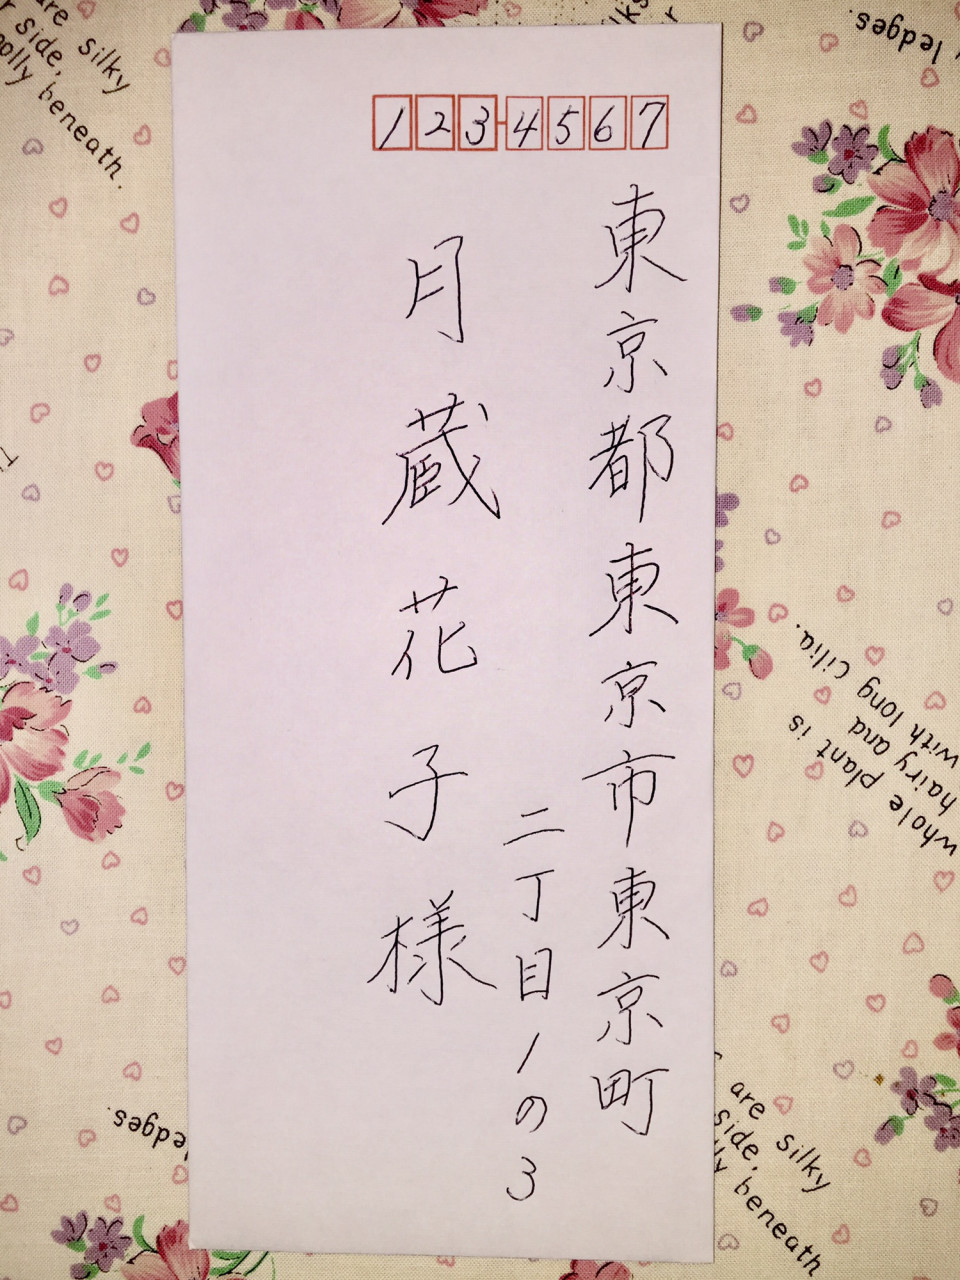 1234567
東京都東京市東京町
二丁目1の3
月蔵花子様
are silky
side,
olly beneath.
ledges.
whole plant is
hairy and
with long cilia.
ledges.
are silky
side,
lly beneath